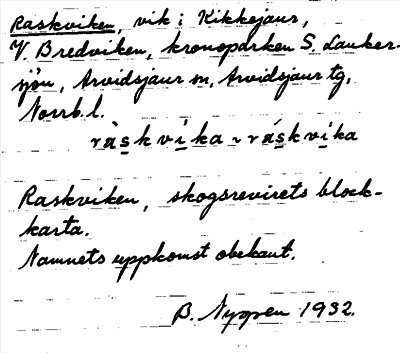 Raskviken, vik i Kikkejaur,
V. Bredviken, kronoparken S. Lauker-
sjön, Arvidsjaur sn, Arvidsjaur tg,
Norrb. l.
ràskvika ~ ráskvika
Raskviken, skogsrevirets block-
karta.
Namnets uppkomst obekant.
B. Nygren 1932.